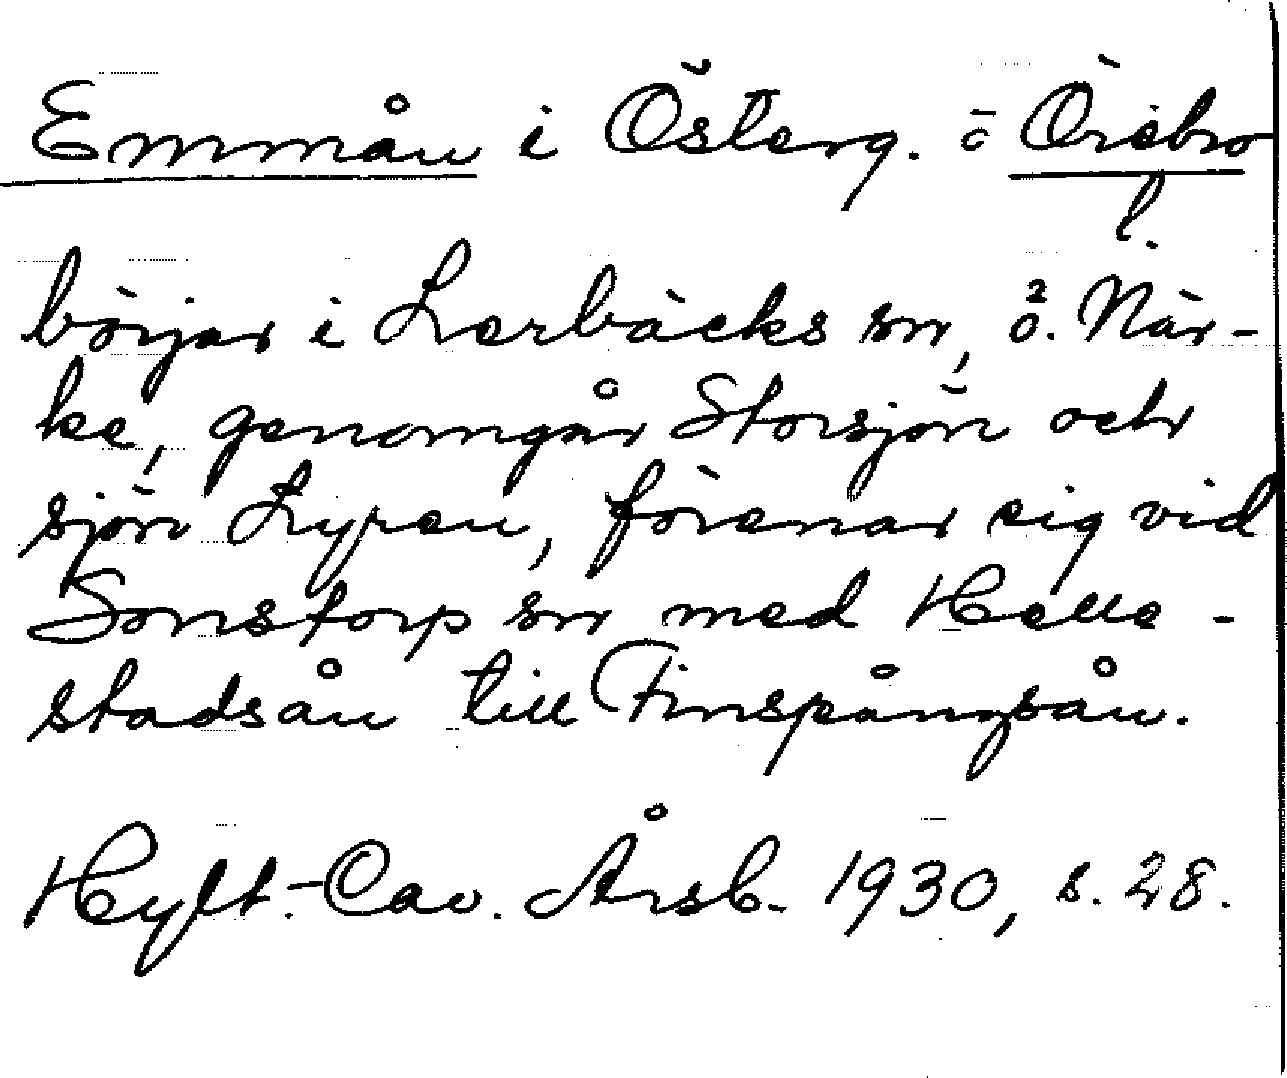 Emmån i Österg. o Örebro
l.
börjar i Lerbäcks sn, ö. När-
ke, genomgår Storsjön och
sjön Lyren, förenar sig vid
Sonstorp sn med Helle-
stadsån till Finspångsån.
Hylt.-Cav. Årsb. 1930, s. 28.